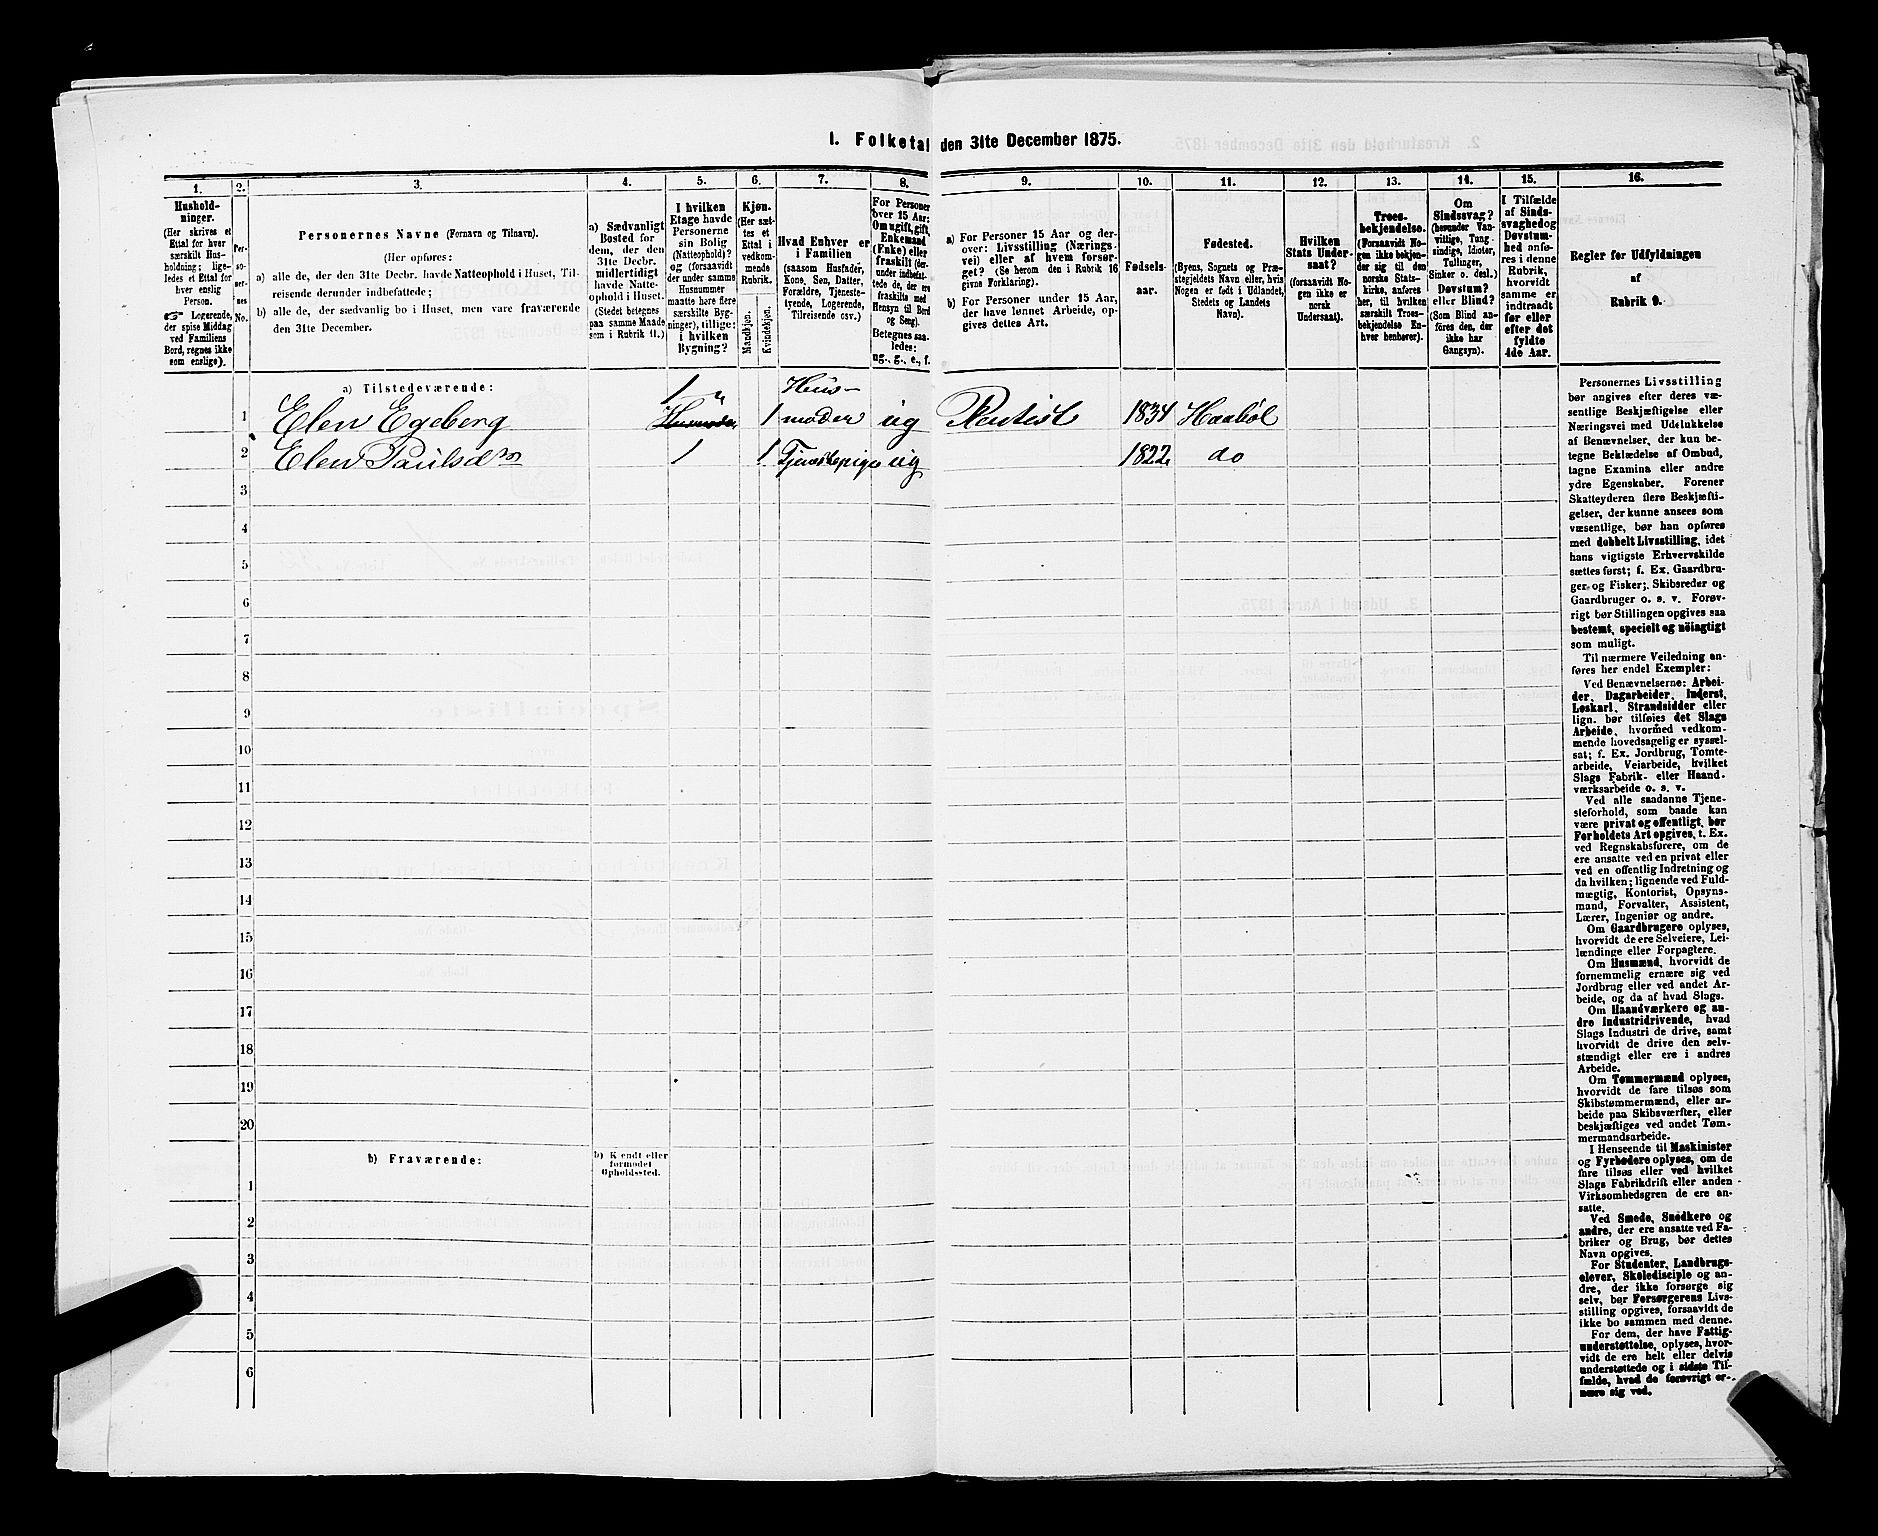 1. Folketal den 31te December 1875.
1. 2. 3. 4. 5. 6. 7. 8. 9. 10. 11. 12. 13. 14. 15. 16.
Hushold-
ninger.
(Her skrives et
Ettal for hver
særskilt Hus-
holdning; lige-
ledes et Ettal for
hver enslig
Person.
☞ Logerende,
der spise Middag
ved Familiens
Bord, regnes ikke
som enslige).
Per-
so-
ner-
nes
No.
Personernes Navne (Fornavn og Tilnavn).
(Her opføres:
a) alle de, der den 31te Decbr. havde Natteophold i Huset, Til-
reisende derunder indbefattede;
b) alle de, der sædvanlig bo i Huset, men vare fraværende
den 31te December.
a) Sædvanligt
Bosted for
dem, der den
31te Decbr.
midlertidigt
havde Natte-
ophold i Huset.
(Stedet betegnes
paa samme Maade
som i Rubrik 11.)
I hvilken
Etage havde
Personerne
sin Bolig
(Natteophold)?
og (forsaavidt
der under samme
Husnummer
maatte høre flere
særskilte Byg-
ninger), tillige:
i hvilken
Bygning?
Kjøn.
(Her sæt-
tes et
Ettal i
vedkom-
mende
Rubrik.
Mandkjøn.
Kvindekjøn.
Hvad Enhver er
i Familien
(saasom Husfader,
Kone, Søn, Datter,
Forældre, Tjeneste-
tyende, Logerende,
Tilreisende osv.)
For Personer
over 15 Aar:
Om ugift, gift,
Enkemand
(Enke) eller
fraskilt (der-
under indbefat-
tede de, der ere
fraskilte med
Hensyn til Bord
og Seng).
Betegnes saa-
ledes:
ug., g., e., f.
a) For Personer 15 Aar og der-
over: Livsstilling (Nærings-
vei) eller af hvem forsør-
get? (Se herom den i Rubrik 16
givne Forklaring).
b) For Personer under 15 Aar,
der have lønnet Arbeide, op-
gives dettes Art.
Fødsels-
aar.
Fødested.
(Byens, Sognets og Præ-
stegjeldets Navn eller, hvis
Nogen er født i Udlandet,
Stedets og Landets
Navn).
Hvilken
Stats Under-
saat?
(forsaavidt No-
gen ikke er
norsk
Undersaat).
Troes-
bekjendelse.
(Forsaavidt No-
gen ikke bekjen-
der sig til den
norske Stats-
kirke, anføres
her, til hvilken
særskilt Troes-
bekjendelse En-
hver henhører).
Om
Sindssvag?
(herunder Van-
vittige, Tung-
sindige, Idioter,
Tullinger,
Sinker o. desl.)
Døvstum?
eller Blind?
(Som Blind an-
føres den, der
ikke har
Gangsyn).
I Tilfælde
af Sinds-
svaghed og
Døvstum-
hed anfø-
res i denne
Rubrik,
hvorvidt
samme er
indtraadt
før eller
efter det
fyldte
4de Aar.
Regler for Udfyldningen
af
Rubrik 9.
a) Tilstedeværende:
1 Elen Egeberg 1 1 Hus-
moder ug Rentist 1834 Haabøl
2 Elen Paulsdtr 1 1 Tjenestepige ug 1822 do
3
4
5
6
7
8
9
10
11
12
13
14
15
16
17
18
19
20
b) Fraværende:
b) Kjendt eller
formodet
Opholdssted.
1
2
3
4
5
6
Personernes Livsstilling
bør angives efter deres væ-
sentlige Beskjæftigelse eller
Næringsvei med Udelukkelse
af Benævnelser, der kun be-
tegne Beklædelse af Ombud,
tagne Examina eller andre
ydre Egenskaber. Forener
Skatteyderen flere Beskjæfti-
gelser, der kunne ansees som
væsentlige, bør han opføres
med dobbelt Livsstilling, idet
hans vigtigste Erhvervskilde
sættes først; f. Ex. Gaardbru-
ger og Fisker; Skibsreder og
Gaardbruger o. s. v. Forøv-
rigt bør Stillingen opgives saa
bestemt, specielt og nöiagtigt
som muligt.
Til nærmere Veiledning an-
føres her endel Exempler:
Ved Benævnelserne: Arbei-
der, Dagarbeider, Inderst,
Løskarl, Strandsidder eller
lign. bør tilføies det Slags
Arbeide, hvormed vedkom-
mende hovedsagelig er syssel-
sat; f. Ex. Jordbrug, Tomte-
arbeide, Veiarbeide, hvilket
Slags Fabrik- eller Haand-
værksarbeide o. s. v.
Ved alle saadanne Tjene-
steforhold, som baade kan
være privat og offentligt, bør
Forholdets Art opgives, t. Ex.
ved Regnskabsførere, om de
ere ansatte ved en privat eller
ved en offentlig Indretning og
da hvilken; lignende ved Fuld-
mægtig, Kontorist, Opsyns-
mand, Forvalter, Assistent,
Lærer, Ingeniør og andre.
Om Gaardbrugere oplyses,
hvorvidt de ere Selveiere, Lei-
lændinge eller Forpagtere.
Om Husmænd, hvorvidt de
fornemmelig ernære sig ved
Jordbrug eller ved andet Ar-
beide, og da af hvad Slags.
Om Haandværkere og an-
dre Industridrivende, hvad
Slags Industri de drive, samt
hvorvidt de drive den selv-
stændigt eller ere i andres
Arbeide.
Om Tømmermænd oplyses,
hvorvidt de fare tilsøs som
Skibstømmermænd, eller ar-
beide paa Skibsværfter, eller
beskjæftiges ved andet Tøm-
mermandsarbeide.
I Henseende til Maskinister
og Fyrbødere oplyses, om de
fare tilsøs eller ved hvilket
Slags Fabrikdrift eller anden
Virksomhedsgren de ere an-
satte.
Ved Smede, Snedkere og
andre, der ere ansatte ved Fa-
briker og Brug, bør dettes
Navn opgives.
For Studenter, Landbrugs-
elever, Skoledisciple og an-
dre, der ikke forsørge sig
selv, bør Forsørgerens Livs-
stilling opgives, forsaavidt de
ikke bo sammen med denne.
For dem, der have Fattig-
understøttelse, oplyses, hvor-
vidt de ere helt eller delvis
understøttede og i sidste Til-
fælde, hvad de forøvrigt er-
nære sig ved.